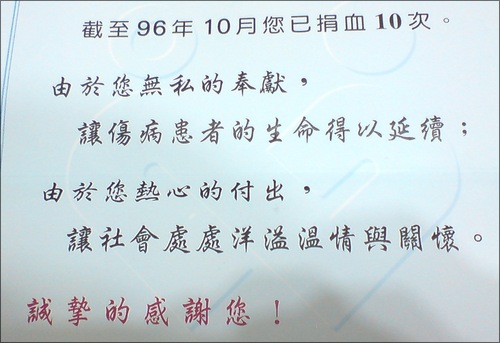 截至96年10月您已捐血10次。
由於您無私的奉獻，
讓傷病患者的生命得以延續；
由於您熱心的付出，
讓社會處處洋溢溫情與關懷。
誠摯的感謝您！